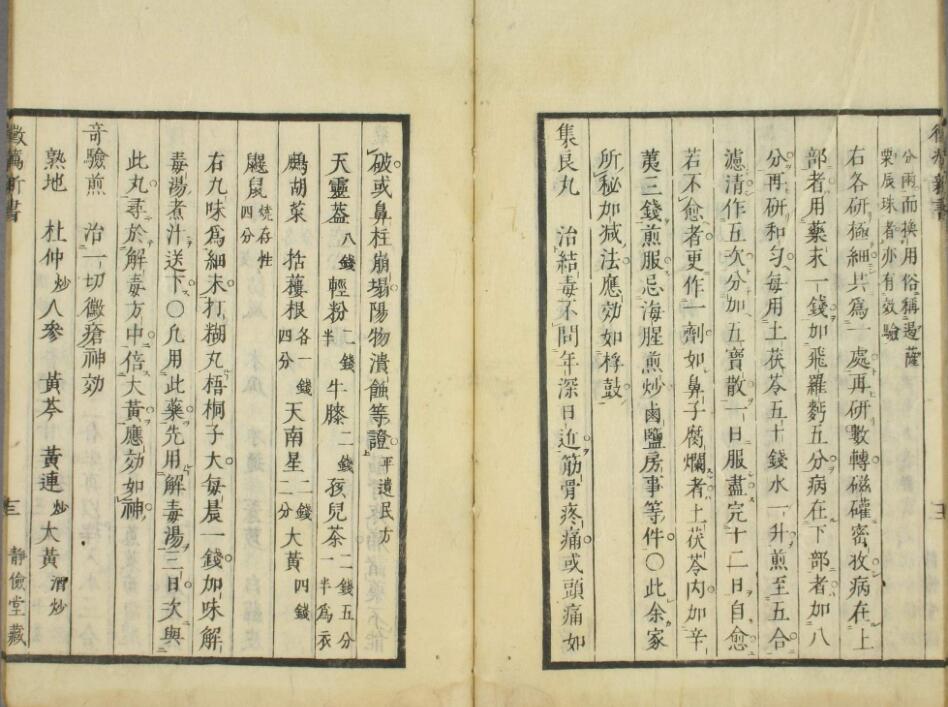 分兩而換用俗稱過薩
栗辰珠者亦有效驗
右各研極細共爲一處再研數轉磁礶密收病在上
部者用藥末一錢加飛羅麪五分病在下部者加八
分再研和勻每用土茯苓五十錢水一升煎至五合
濾清作五次分加五寶散一日服盡完十二日自愈
若不愈者更作一劑如鼻子腐爛者土茯苓內加辛
荑三錢煎服忌海腥煎炒鹵鹽房事等件〇此余家
所秘加減法應効如桴鼓
集良丸 治結毒不問年深日近筋骨疼痛或頭痛如
破或鼻柱崩塌陽物潰蝕等證 平遺民方
天靈蓋 八錢 輕粉 二錢半 牛膝 二錢 孩兒茶 二錢五分一半爲衣
鷓胡菜 括蔞根 各一錢四分 天南星 二錢二分 大黃 四錢
鼴鼠 燒存性四分
右九味爲細末打糊丸梧桐子大每晨一錢加味解
毒湯煮汁送下〇凡用此藥先用解毒湯三日次與
此丸尋於解毒方中倍大黃應効如神
奇驗煎 治一切黴瘡神効
熟地 杜仲 炒 人參 黃芩 黃連 炒 大黃 酒炒
三
靜儉堂藏